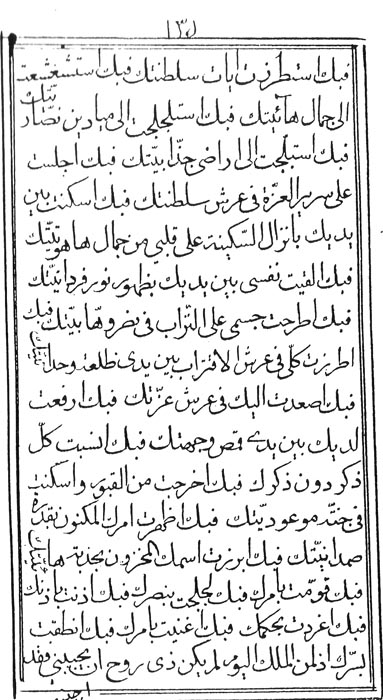 ١٣٥
فبك استطرزت ايات سلطنتك فبك استشعشعت
الى جمال هائيتك فبك استلجلجت الى ميادين نضار يتك
فبك استبلجت الى اراضى جذابيتك فبك اجلست
على سرير العزة فى عرش سلطنتك فبك اسكنت بين
يديك بانزال السكينة على قلبى من جمال هاهو تيتك
فبك القيت نفسى بين يديك بظهور نور فردانيتك
فبك اطرحت جسمى على التراب فى نضروهابيتك فبك
اطرزت كلى فى عرش الاقتراب بين يدى طلعة وحدا نيتك
فبك اصعدت اليك فى عرش عزتك فبك ارفعت
لديك بين يدى قمص وجهتك فبك انسيت كل
ذكر دون ذكرك فبك اخرجت من القبور واسكنت
فى جنة موعوديتك فبك اظهرت امرك المكنون بقدرة
صمدانيتك فبك ابرزت اسمك المخزون بجذبة ها ئيتك
فبك قومت بامرك فبك لجلجت بنصرك فبك اذنت باذنك
فبك اعردت بحكمك فبك اغنيت بامرك فبك انطقت
بسرك اذ لمن الملك اليوم لم يكن ذى روح ان يجيبنى فقد